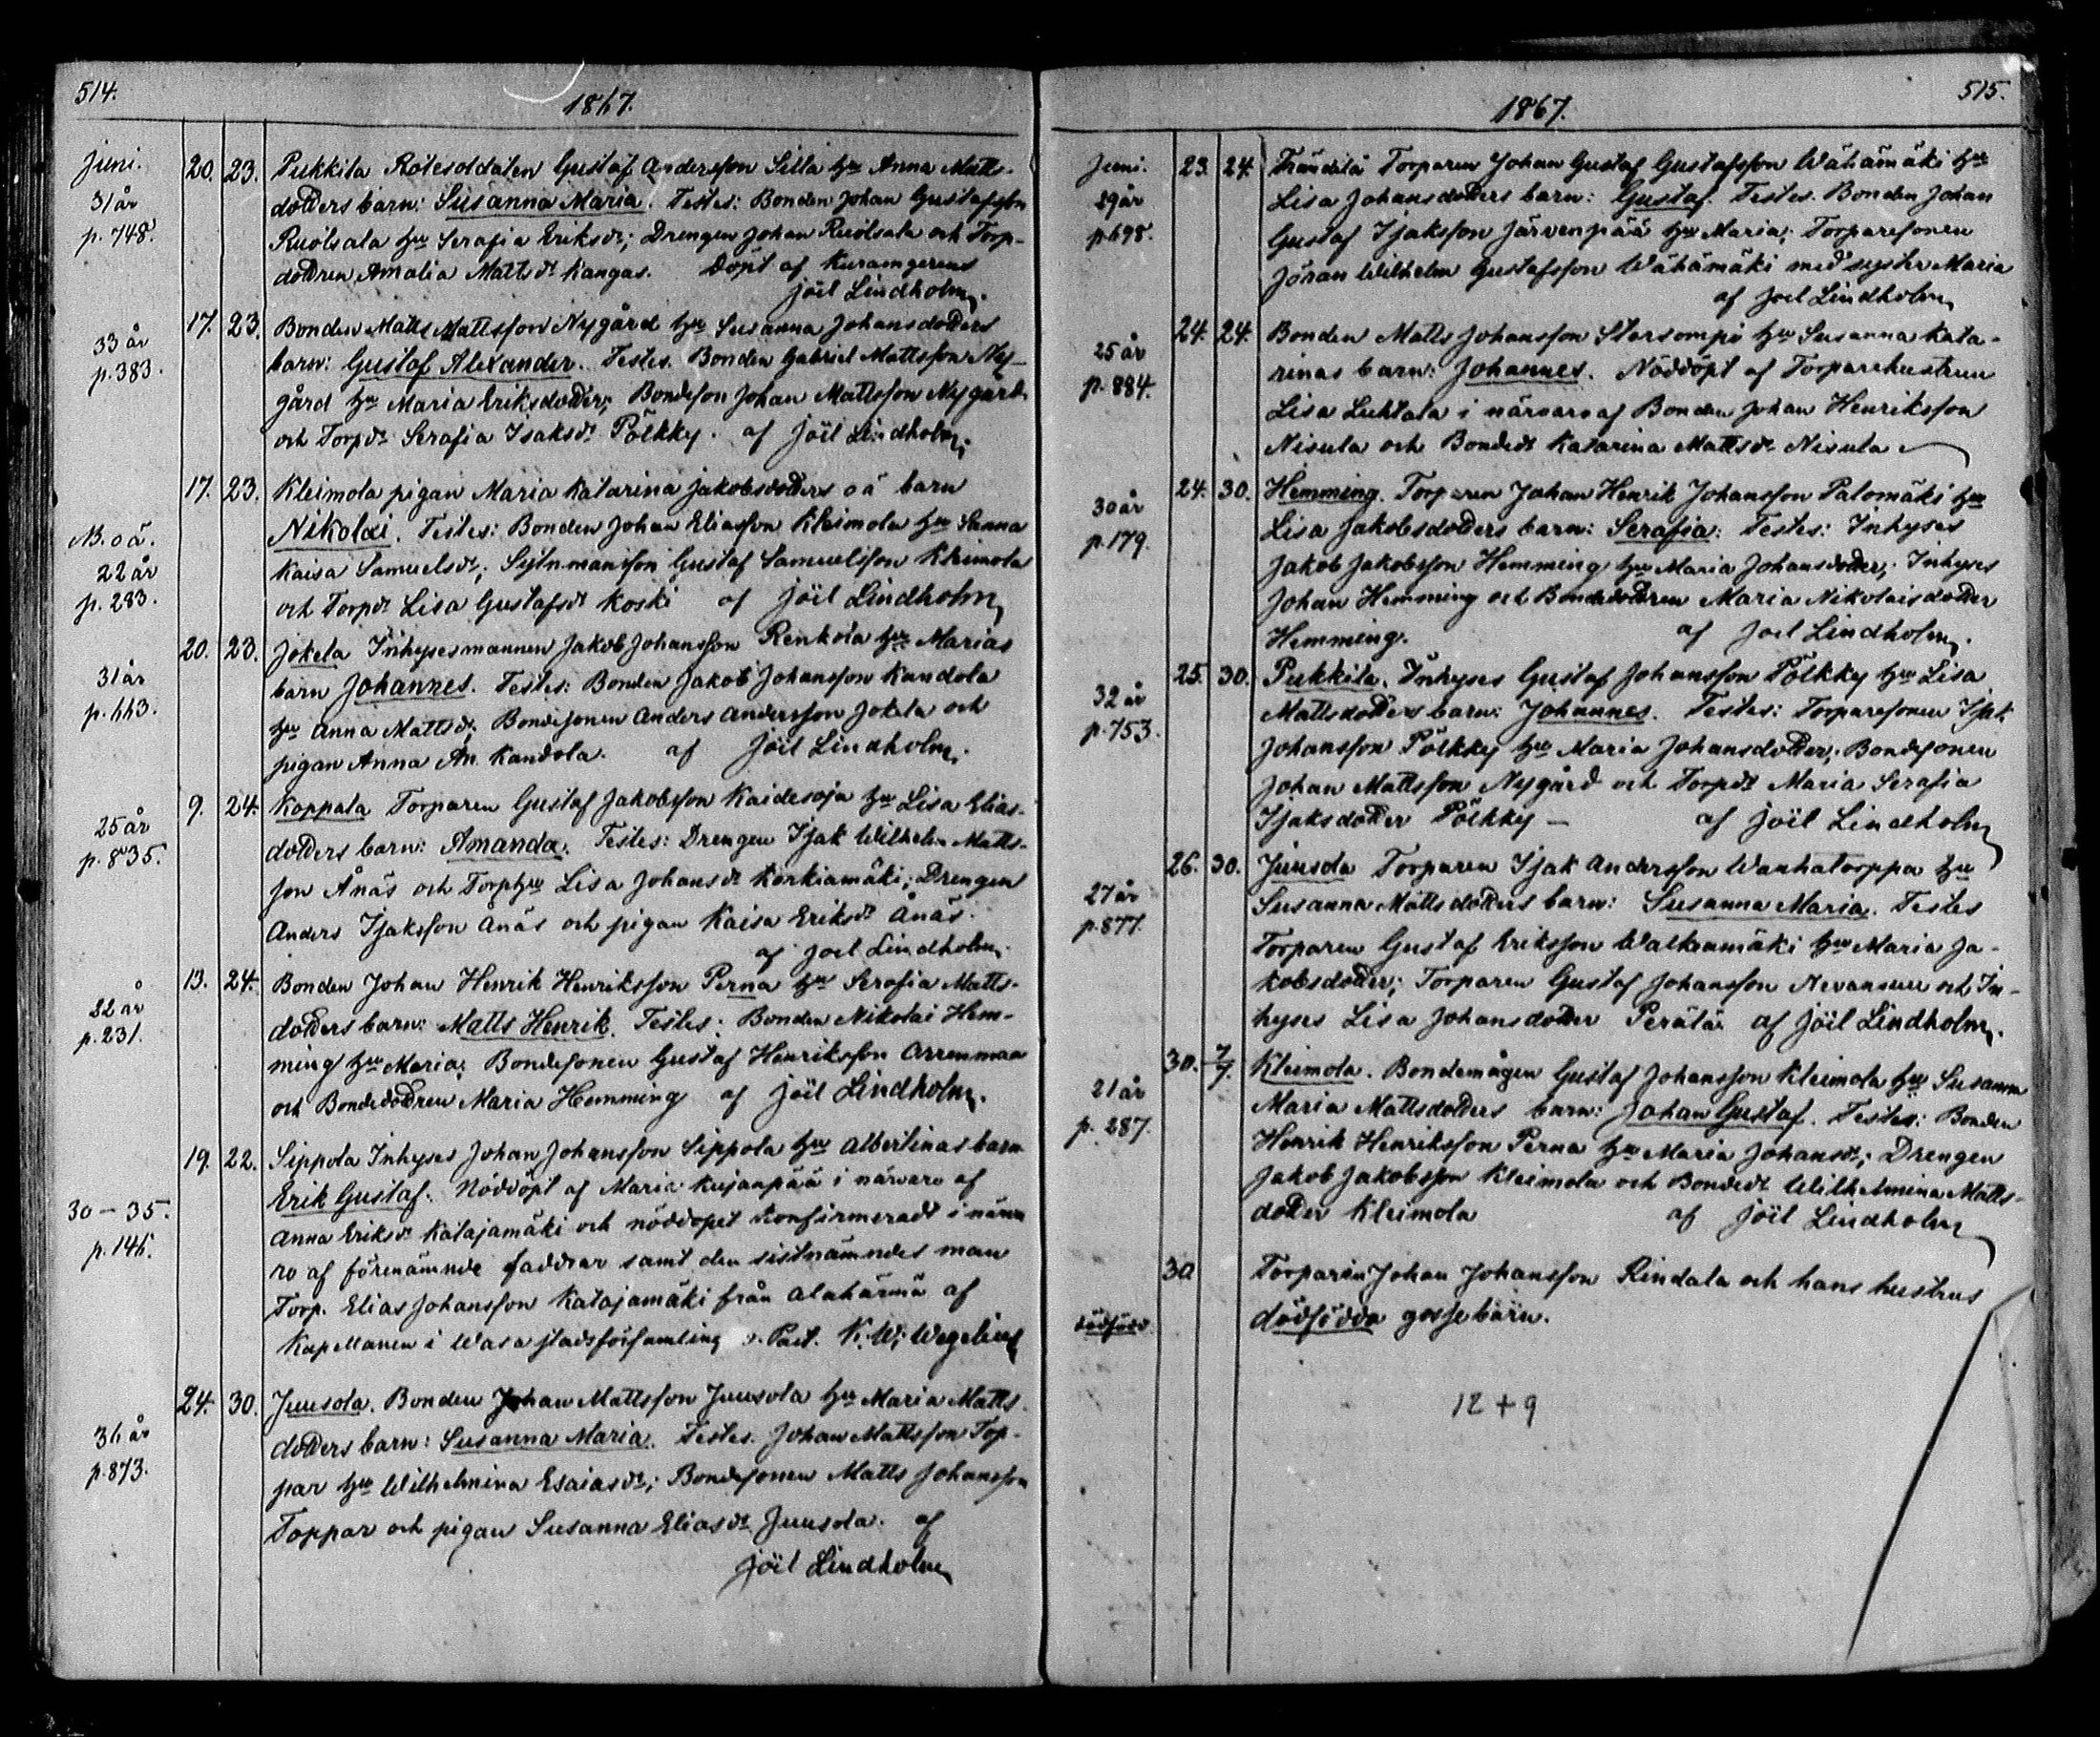 514.
1867.
Juni.
31 år
p. 748.
20. 23. Pukkila Rotesoldaten Gustaf Andersson Silla hu Anna Matts-
dotters barn: Susanna Maria. Testes: Bonden Johan Gustafsson
Ruotsala hu Serafia Eriksdr; Drengen Johan Ruotsala och Torp-
dottren Amalia Mattsdr Kangas. Döpt af
Joël Lindholm.
33 år
p. 383.
17. 23. Bonden Matts Mattsson Nygård hu Susanna Johansdotters
barn: Gustaf Alexander. Testes. Bonden Gabriel Mattsson Ny-
gård hu Maria Eriksdotter; Bondeson Johan Mattsson Nygård
och Torpdr Serafia Isaksdr Pölkky. af Joël Lindholm.
N.B. oä.
22 år
p. 283.
17. 23. Kleimola pigan Maria Katarina Jakobsdotters oä barn
Nikolai. Testes: Bonden Johan Eliasson Kleimola hu Sanna
Kaisa Samuelsdr; Gustaf Samuelsson Kleimola
och Torpdr Lisa Gustafsdr Koski af Joël Lindholm
31 år
p. 663.
20. 23. Jokela Inhysesmannen Jakob Johansson Renkola hu Marias
barn Johannes. Testes: Bonden Jakob Johansson Kandola
hu Anna Mattsdr; Bondesonen Anders Andersson Jokela och
pigan Anna An. Kandola. af Joël Lindholm.
25 år
p. 835.
9. 24. Koppala Torparen Gustaf Jakobsson Kaidesoja hu Lisa Elias-
dotters barn: Amanda. Testes: Drengen Isak Wilhelm Matts-
son Ånäs och Torphu Lisa Johansdr Korkiamäki; Drengen
Anders Isaksson Ånäs och pigan Kaisa Eriksdr Ånäs.
af Joel Lindholm.
22 år
p. 231.
13. 24. Bonden Johan Henrik Henriksson Perna hu Serafia Matts-
dotters barn: Matts Henrik. Testes: Bonden Nikolai Hem-
ming hu Maria; Bondesonen Gustaf Henriksson Orrenmaa
och Bondedottren Maria Hemming af Joël Lindholm.
30 – 35.
p. 146.
19. 22. Sippola Inhyses Johan Johansson Sippola hu Albertinas barn
Erik Gustaf. Nöddöpt af Maria Kujanpää i närvaro af
Anna Eriksdr Katajamäki och nöddopet konfirmeradt i närva
ro af förenämnde faddrar samt den sistnämndes man
Torp. Elias Johansson Katajamäki från Alahärmä af
Kapellanen i Wasa stadsförsamling v. Past. K. W. Wegelius
36 år
p. 873.
24. 30. Juusola. Bonden Johan Mattsson Juusola hu Maria Matts
dotters barn: Susanna Maria. Testes. Johan Mattsson Top-
par hu Wilhelmina Esaiasdr; Bondesonen Matts Johansson
Toppar och pigan Susanna Eliasdr Juusola. af
Joël Lindholm
515.
1867.
Juni.
29 år
p. 698.
23. 24. Frändilä Torparen Johan Gustaf Gustafsson Wähämäki hu
Lisa Johansdotters barn: Gustaf. Testes. Bonden Johan
Gustaf Isaksson Järvenpää hu Maria; Torparesonen
Jöran Wilhelm Gustafsson Wähämäki med syster Maria
af Joel Lindholm
25 år
p. 884.
24. 24. Bonden Matts Johansson Storsompi hu Susanna Kata-
rinas barn: Johannes. Nöddöpt af Torparehustrun
Lisa Luhtala i närvaro af Bonden Johan Henriksson
Nisula och Bondedr Katarina Mattsdr Nisula
30 år
p. 179.
24. 30. Hemming. Torparen Johan Henrik Johansson Palomäki hu
Lisa Jakobsdotters barn: Serafia: Testes: Inhyses
Jakob Jakobsson Hemming hu Maria Johansdotter; Inhyses
Johan Hemming och Bondedottren Maria Nikolaisdotter
Hemming. af Joel Lindholm.
32 år
p. 753.
25. 30. Pukkila. Inhyses Gustaf Johansson Pölkky hu Lisa
Mattsdotters barn: Johannes. Testes: Torparesonen Isak
Johansson Pölkky hu Maria Johansdotter; Bondesonen
Johan Mattsson Nygård och Torpdr Maria Serafia
Isaksdotter Pölkky – af Joël Lindholm
27 år
p. 877.
26. 30. Juusola Torparen Isak Andersson Wanhatorppa hu
Susanna Mattsdotters barn: Susanna Maria. Testes
Torparen Gustaf Eriksson Walkiamäki hu Maria Ja-
kobsdotter; Torparen Gustaf Johansson Nevansuu och In-
hyses Lisa Johansdotter Perälä af Joël Lindholm.
21 år
p. 287.
30. 7/7. Kleimola. Bondemågen Gustaf Johansson Kleimola hu Susanna
Maria Mattsdotters barn: Johan Gustaf. Testes: Bonden
Henrik Henriksson Perna hu Maria Johansdr; Drengen
Jakob Jakobsson Kleimola och Bondedr Wilhelmina Matts-
dotter Kleimola af Joël Lindholm
dödfödd
30 Torparen Johan Johansson Rindala och hans hustrus
dödfödda gossebarn.
12 + 9